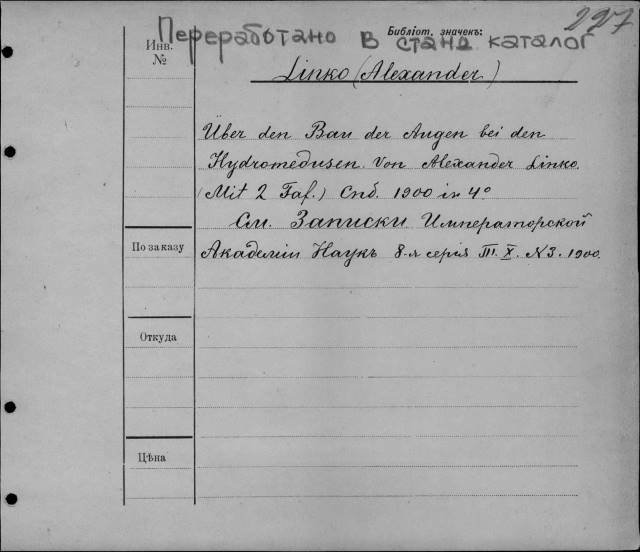 227
Библіот. значекъ:
Переработано в станд каталог
Инв.
№
Linko (Alexander)
Über den Bau der Augen bei den
Hydromedusen. Von Alexander Linko.
(Mit 2 Taf.) Спб. 1900 in 4°
См. Записки Императорской
По заказу
Академіи Наукъ 8-я серія Т. X. № 3. 1900.
Откуда
Цѣна